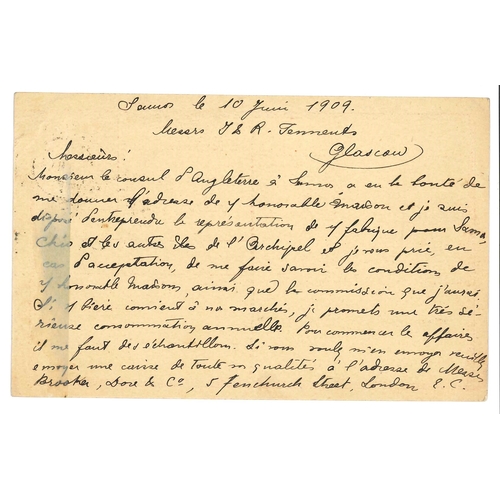 Samos le 10 Juin 1909.
Messrs J & R. Tennents
Glascow
Messieurs!
Monsieur le consul d'Angleterre à Samos, a eu la bonté de
me donner l'adresse de y honorable Maison et je suis
disposé d'entreprendre la représentation de y fabrique pour Samos,
et les autres Iles de l'Archipel et je vous prie, en
cas d'acceptation, de me faire savoir les conditions de
y honorable Maison, ainsi que la commission que j'aurai.
Si y bière convient à nos marchés, je promets une très sé-
rieuse consommation annuelle. Pour commencer le affaires
il me faut des échantillons. Si vous voulez m'en envoyer veuillez
envoyer une caisse de toute vo qualités à l'adresse de Messrs
Brooker, Dore & Co, 5 Fenchurch Street, London E.C.